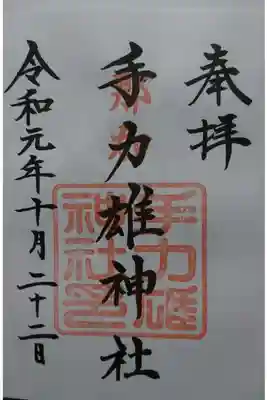 奉拝
手力雄神社
令和元年十月二十二日
手力雄
神社印